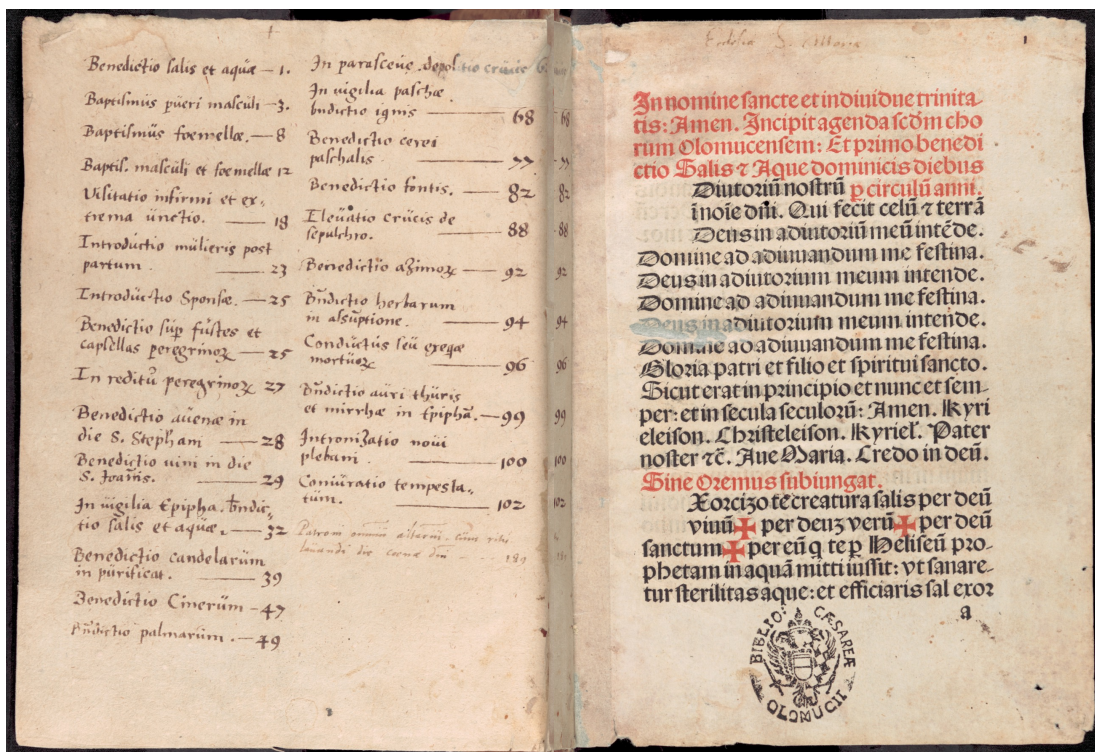 Benedictio salis et aquæ — 1.
Baptismus pueri masculi — 3.
Baptismus foemellæ. — 8
Baptis. masculi et foemellæ 12
Visitatio infirmi et ex-
trema unctio. — 18
Introductio mulieris post
partum — 23
Introductio Sponsæ. — 25
Benedictio sup fustes et
capsellas peregrinoꝝ — 25
In reditu peregrinoꝝ 27
Benedictio avenæ in
die S. Stephani — 28
Benedictio vini in die
S. Joannis. — 29
In vigilia Epipha. bndic-
tio salis et aquæ. — 32
Benedictio candelarum
in purificat. — 39
Benedictio Cinerum — 47
Bndictio palmarum. — 49
In parasceve. depositio crucis 6
In vigilia paschæ
bndictio ignis — 68
Benedictio cerei
paschalis — 77
Benedictio fontis. — 82
Elevatio crucis de
sepulchro. — 88
Benedictio azimoꝝ — 92
Bndictio herbarum
in assuptione. — 94
Conductus seu exeqæ
mortuoꝝ — 96
Bndictio auri thuris
et mirrhæ in Epipha. — 99
Intronizatio novi
plebani — 100
Coniuratio tempesta-
tum. — 102
68
77
82
88
92
94
96
99
100
102
Ecclesia S.
1
In nomine sancte et indiuidue trinita
tis: Amen. Incipit agenda scd̄m cho
rum Olomucensem: Et primo benedi
ctio Salis ⁊ Aque dominicis diebus
Diutoriū nostrū ꝑ circulū anni.
inoīe dn̄i. Qui fecit celū ⁊ terrā
Deus in adiutoriū meū intēde.
Domine ad adiuuandum me festina.
Deus in adiutorium meum intende.
Domine ad adiuuandum me festina.
Deus in adiutorium meum intende.
Domine ad adiuuandum me festina.
Gloria patri et filio et spiritui sancto.
Sicut erat in principio et nunc et sem-
per: et in secula seculorū: Amen. Kyri
eleison. Christeleison. Kyriel. Pater
noster ⁊c̄. Aue Maria. Credo in deū.
Sine Oremus subiungat.
Exorcizo te creatura salis per deū
viuū ✠ per deuz verū ✠ per deū
sanctum ✠ per eū q te ꝑ Heliseū pro-
phetam in aquā mitti iussit: vt sanare-
tur sterilitas aque: et efficiaris sal exor
a
BIBLIO: CÆSAREÆ OLOMUCII